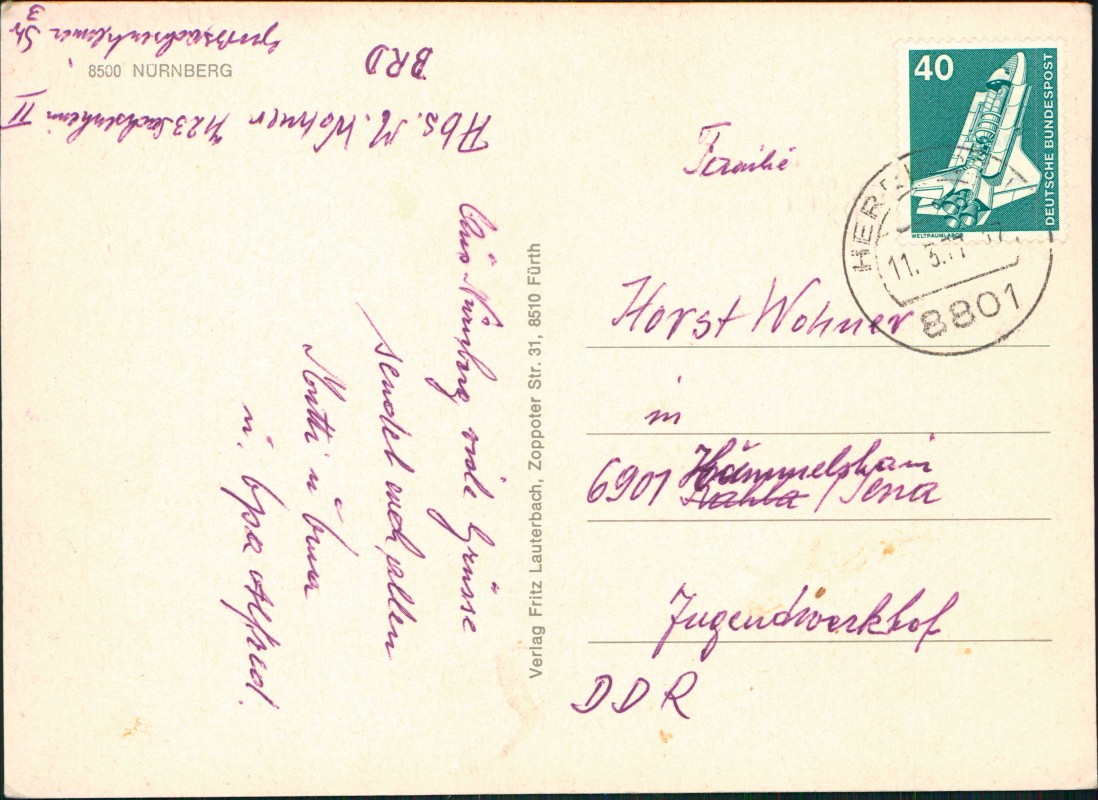 8500 NÜRNBERG
Abs. M. Wohner 7123 Sachsenheim II
Großsachsenheimer Str
3
BRD
Aus Nürnberg viele Grüsse
sendet euch allen
Mutti u. Oma
u. Opa Alfred.
Verlag Fritz Lauterbach, Zoppoter Str. 31, 8510 Fürth
40
DEUTSCHE BUNDESPOST
WELTRAUMLABOR
11. 5.77
8801
Familie
Horst Wohner
in
6901 Hummelshain
Kahla / Jena
Jugendwerkhof
DDR